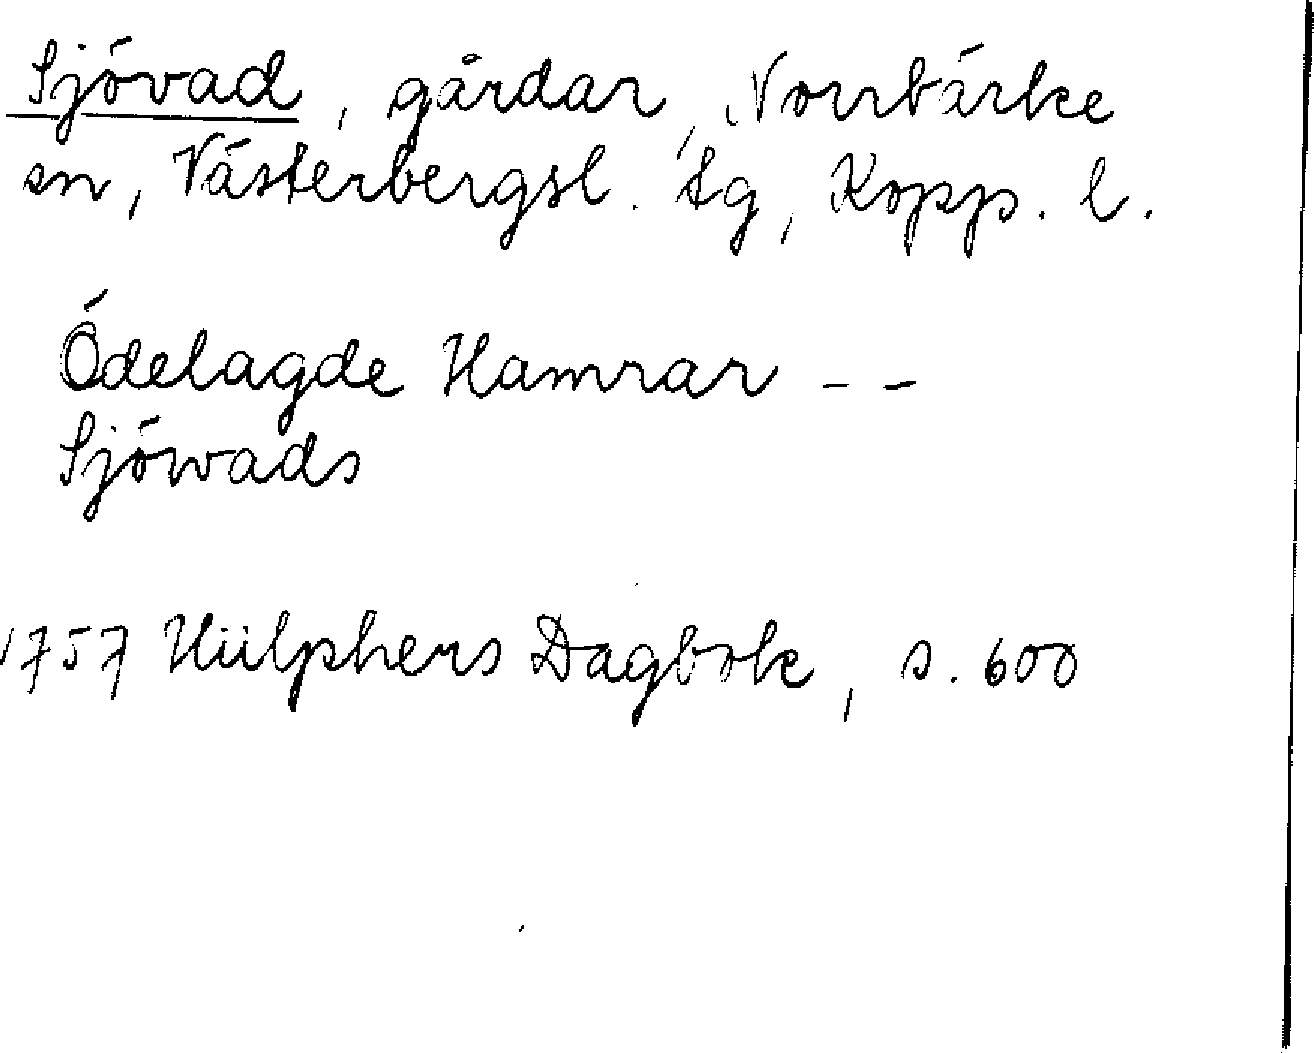 Sjövad, gårdar, Norrbärke
sn, Västerbergsl. tg, Kopp. l.
Ödelagde Hamrar - -
Sjöwads
1757 Hülphers Dagbok, s. 600